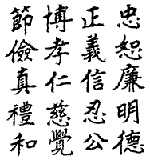 忠恕廉明德
正義信忍公
博孝仁慈覺
節儉真禮和